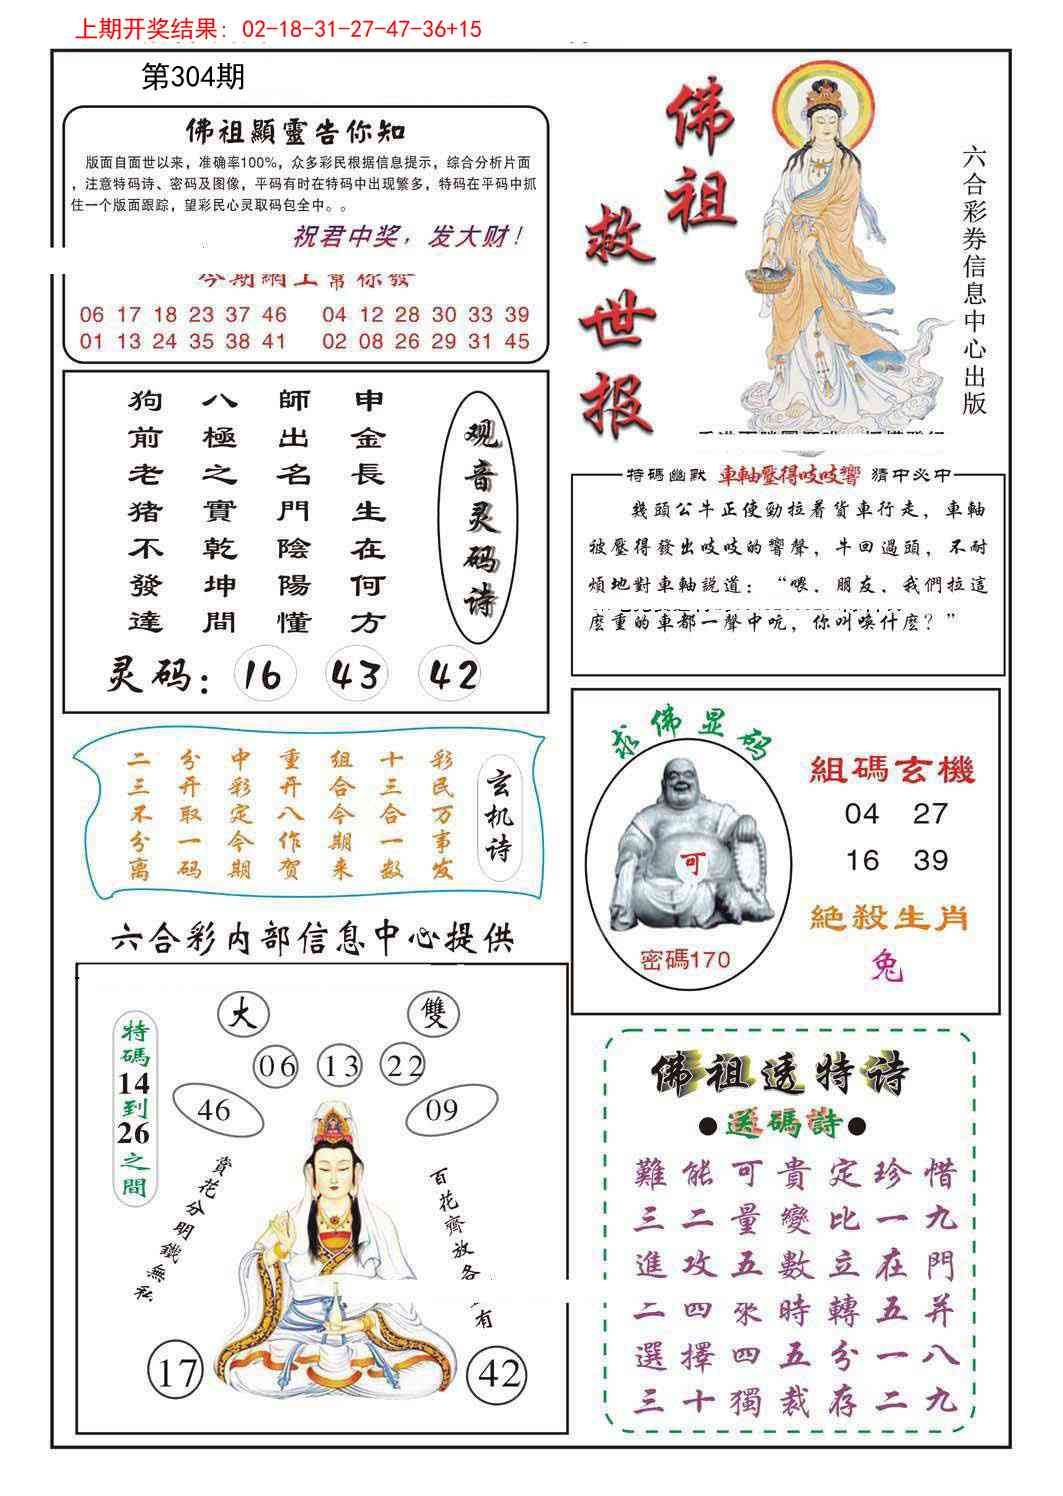 上期开奖结果：02-18-31-27-47-36+15
第304期
佛祖顯靈告你知
版面自面世以来，准确率100%，众多彩民根据信息提示，综合分析片面
，注意特码诗、密码及图像，平码有时在特码中出现繁多，特码在平码中抓
住一个版面跟踪，望彩民心灵取码包全中。。
祝君中奖，发大财！
今期網上幫你發
06 17 18 23 37 46 04 12 28 30 33 39
01 13 24 35 38 41 02 08 26 29 31 45
佛祖
救世报
六合彩券信息中心出版
观音灵码诗
申金長生在何方
師出名門陰陽懂
八極之實乾坤間
狗前老猪不發達
灵码：16 43 42
特碼幽默 車軸壓得吱吱響 猜中必中
幾頭公牛正使勁拉着貨車行走，車軸
被壓得發出吱吱的響聲，牛回過頭，不耐
煩地對車軸説道：“喂，朋友，我們拉這
麽重的車都一聲中吭，你叫唤什麽？”
玄机诗
彩民万事发
十三合一数
组合今期来
重开八作贺
中彩定今期
分开取一码
二三不分离
求佛显码
可
密碼170
組碼玄機
04 27
16 39
絶殺生肖
兔
六合彩内部信息中心提供
特碼14到26之間
大 雙
06 13 22
46 09
賞花分明鐵無私
百花齊放各
有
17 42
佛祖透特诗
●送碼詩●
難能可貴定珍惜
三二量變比一九
進攻五數立在門
二四來時轉五并
選擇四五分一八
三十獨裁存二九